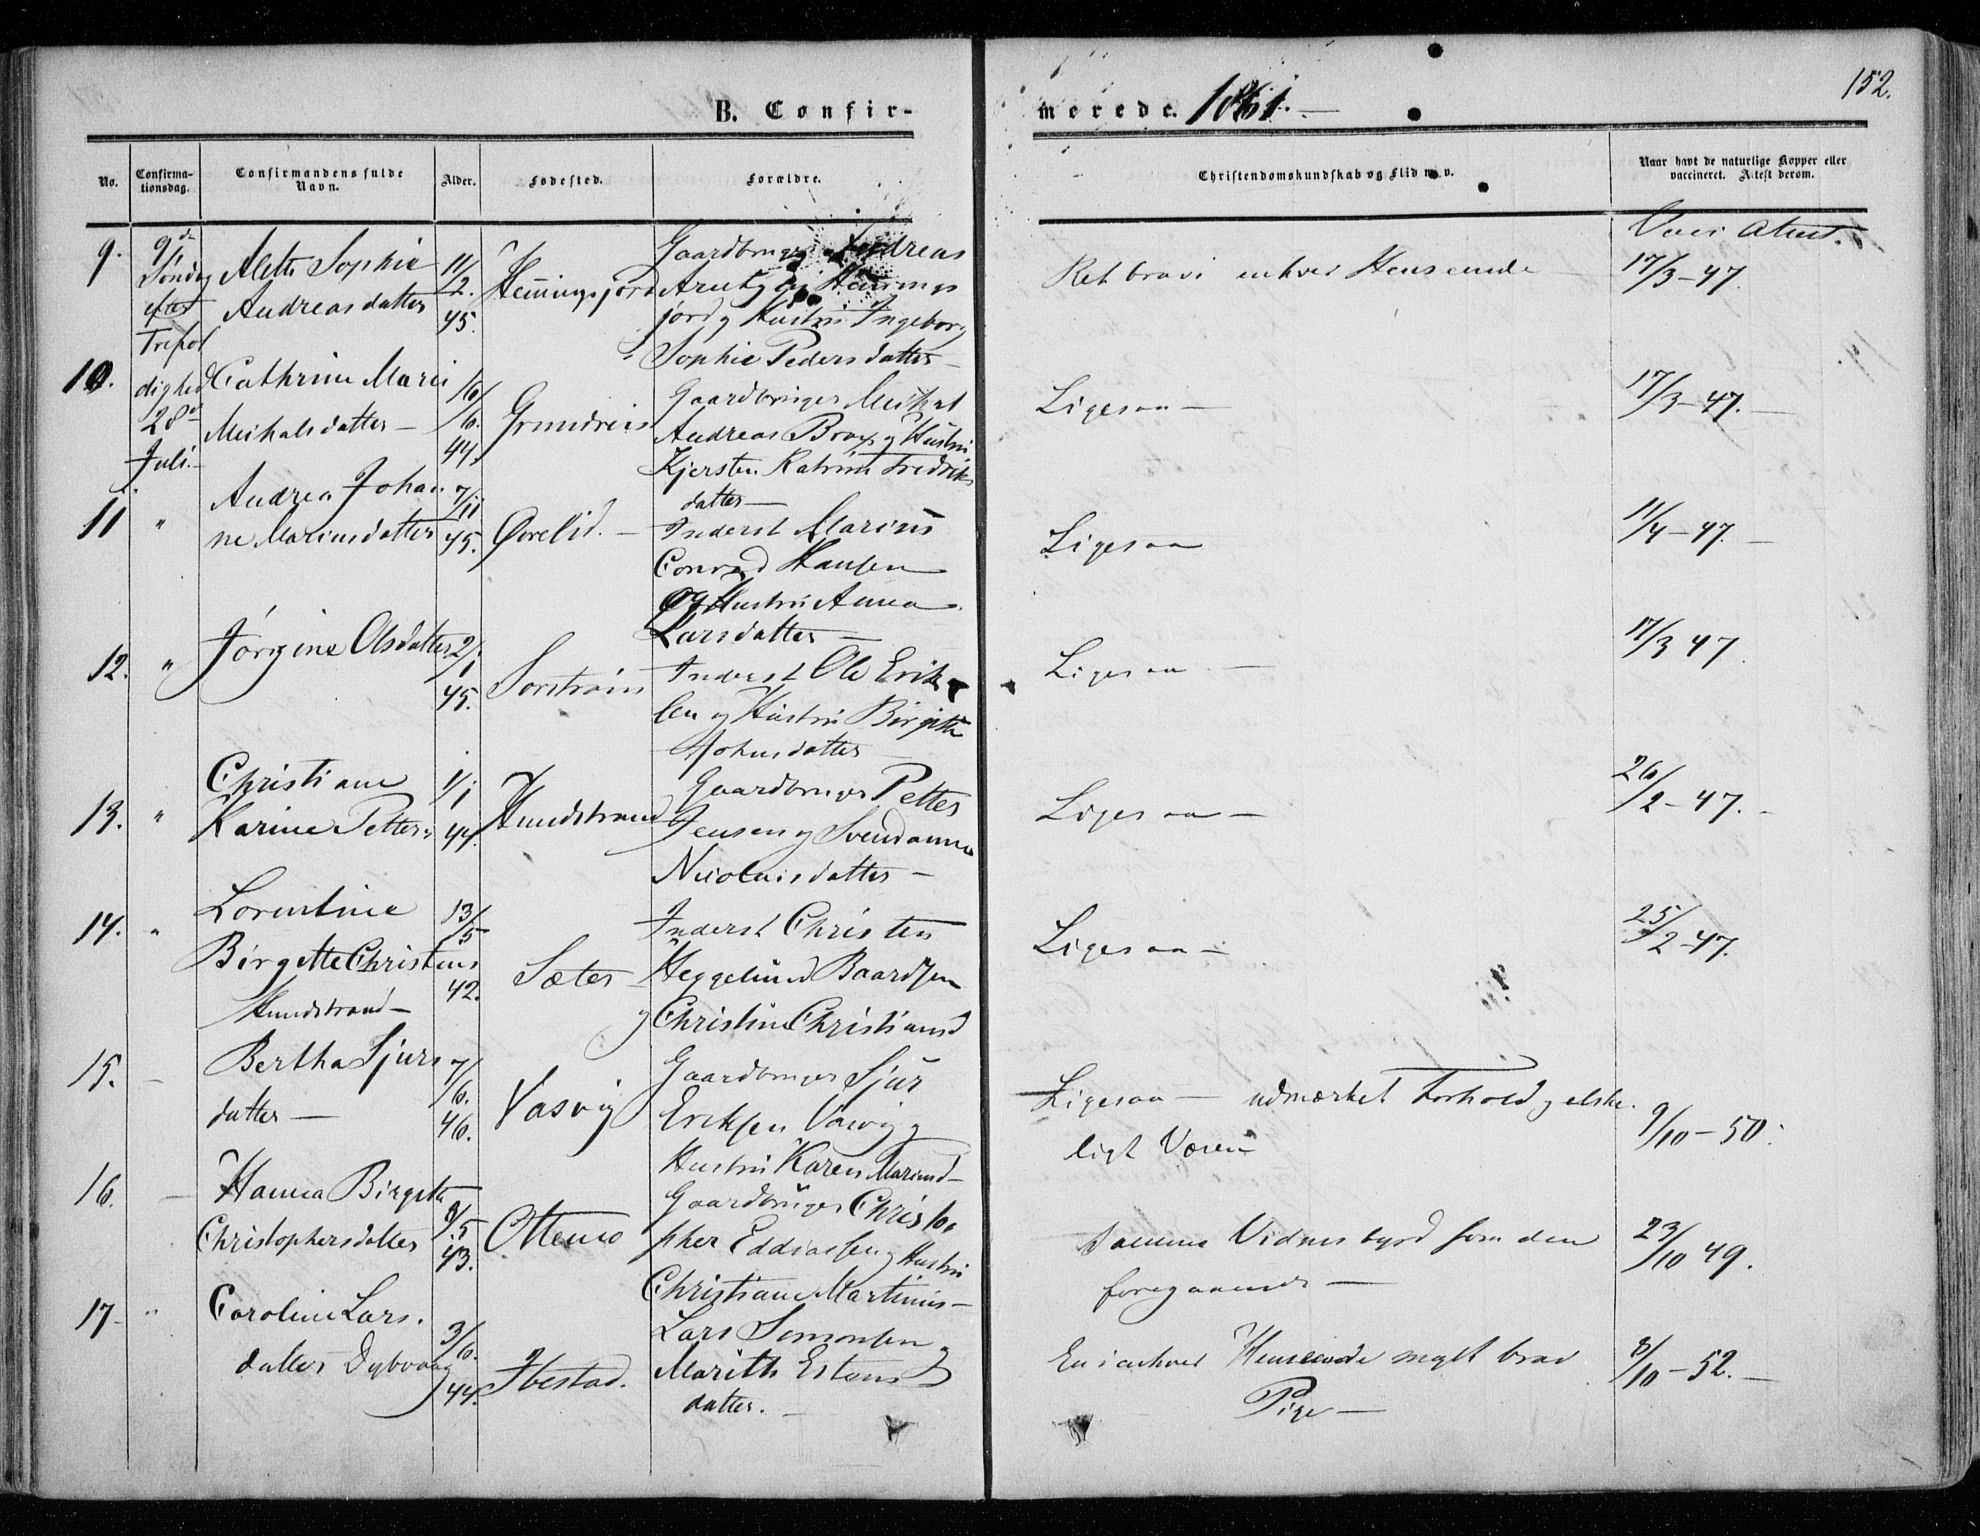 152.
B. Confir-
merede. 1861.
No.
Confirma-
tionsdag.
Confirmandens fulde
Navn.
Alder.
Fødested.
Forældre.
Christendomskundskab og Flid m. v.
Naar havt de naturlige Kopper eller
vaccineret. Attest derom.
9. 9de Søndag efter Trefoldighed 28de Juli.
Aletta Sophie
Andreasdatter
11/2. 45.
Hemingsjord
Gaardbruger Andreas
Hemings
jord og Hustru Ingeborg
Sophie Pedersdatter
Ret brav i enhver Henseende
17/3-47.
10.
Cathrine Marie
Meikalsdatter
16/6. 44.
Grundreis
Gaardbruger Meikal
Andreas Brox og Hustru
Kjersten Katrine Fredriks
datter
Ligesaa
17/3-47.
11 "
Andrea Johan
ne Mariusdatter
7/11 45.
Øvrelid.
Inderst Marius
Conrad Hansen
og Hustru Anna
Larsdatter
Ligesaa
11/4-47.
12. "
Jørgine Olsdatter
2/1 45.
Sorstrøm
Inderst Ole Erik
sen og Hustru Birgitte
Johnsdatter
Ligesaa
17/3 47.
13. "
Christiane
Karine Petters
1/1 44.
Hundstrand
Gaardbruger Petter
Jensen og Svendanna
Nicolaisdatter
Ligesaa
26/2-47.
14. "
Lorentine
Birgitte Christens
Hundstrand
13/5 42.
Sæter
Inderst Christen
Heggelund Baardsen
og Christine Christiansd
Ligesaa
25/2-47.
15.
Bertha Sjurs
datter
7/6. 46.
Vasvig
Gaardbruger Sjur
Eriksen Vasvig og
Hustru Karen Mariusd
Ligesaa udmærket Forhold og elske
ligt Væsen
9/10-50.
16.
Hanna Birgitte
Christophersdatter
8/5 43.
Ottemo
Gaardbruger Christo
pher Eddiassen og Hustru
Christiane Martinus
samme Vidnesbyrd som den
foregaaende
23/10 49.
17. "
Caroline Lars.
datter Dybvaag
3/6. 44.
Ibestad.
Lars Simonsen og
Marith Estens
datter.
En i enhver Henseende meget brav
Pige
8/10-52.